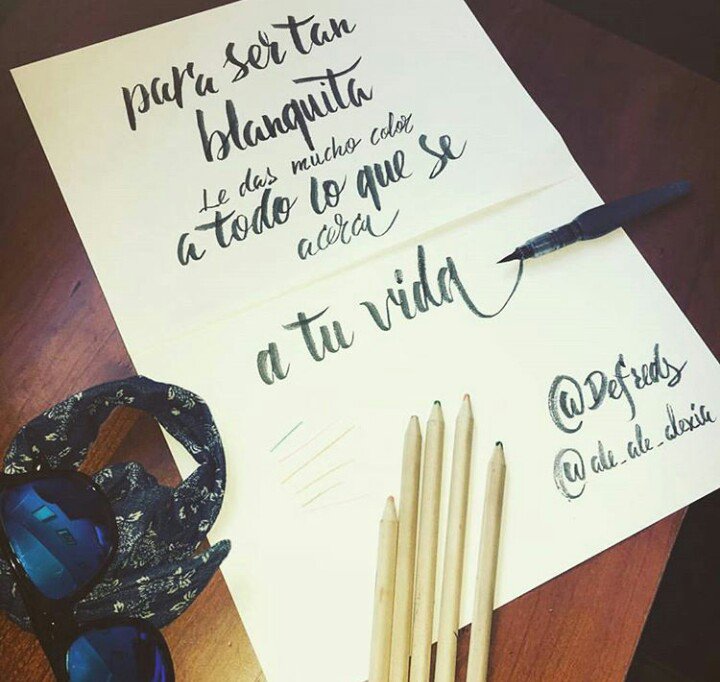 para ser tan
blanquita
Le das mucho color
a todo lo que se
acerca
a tu vida
@Defreds
@ale_ale_alexia